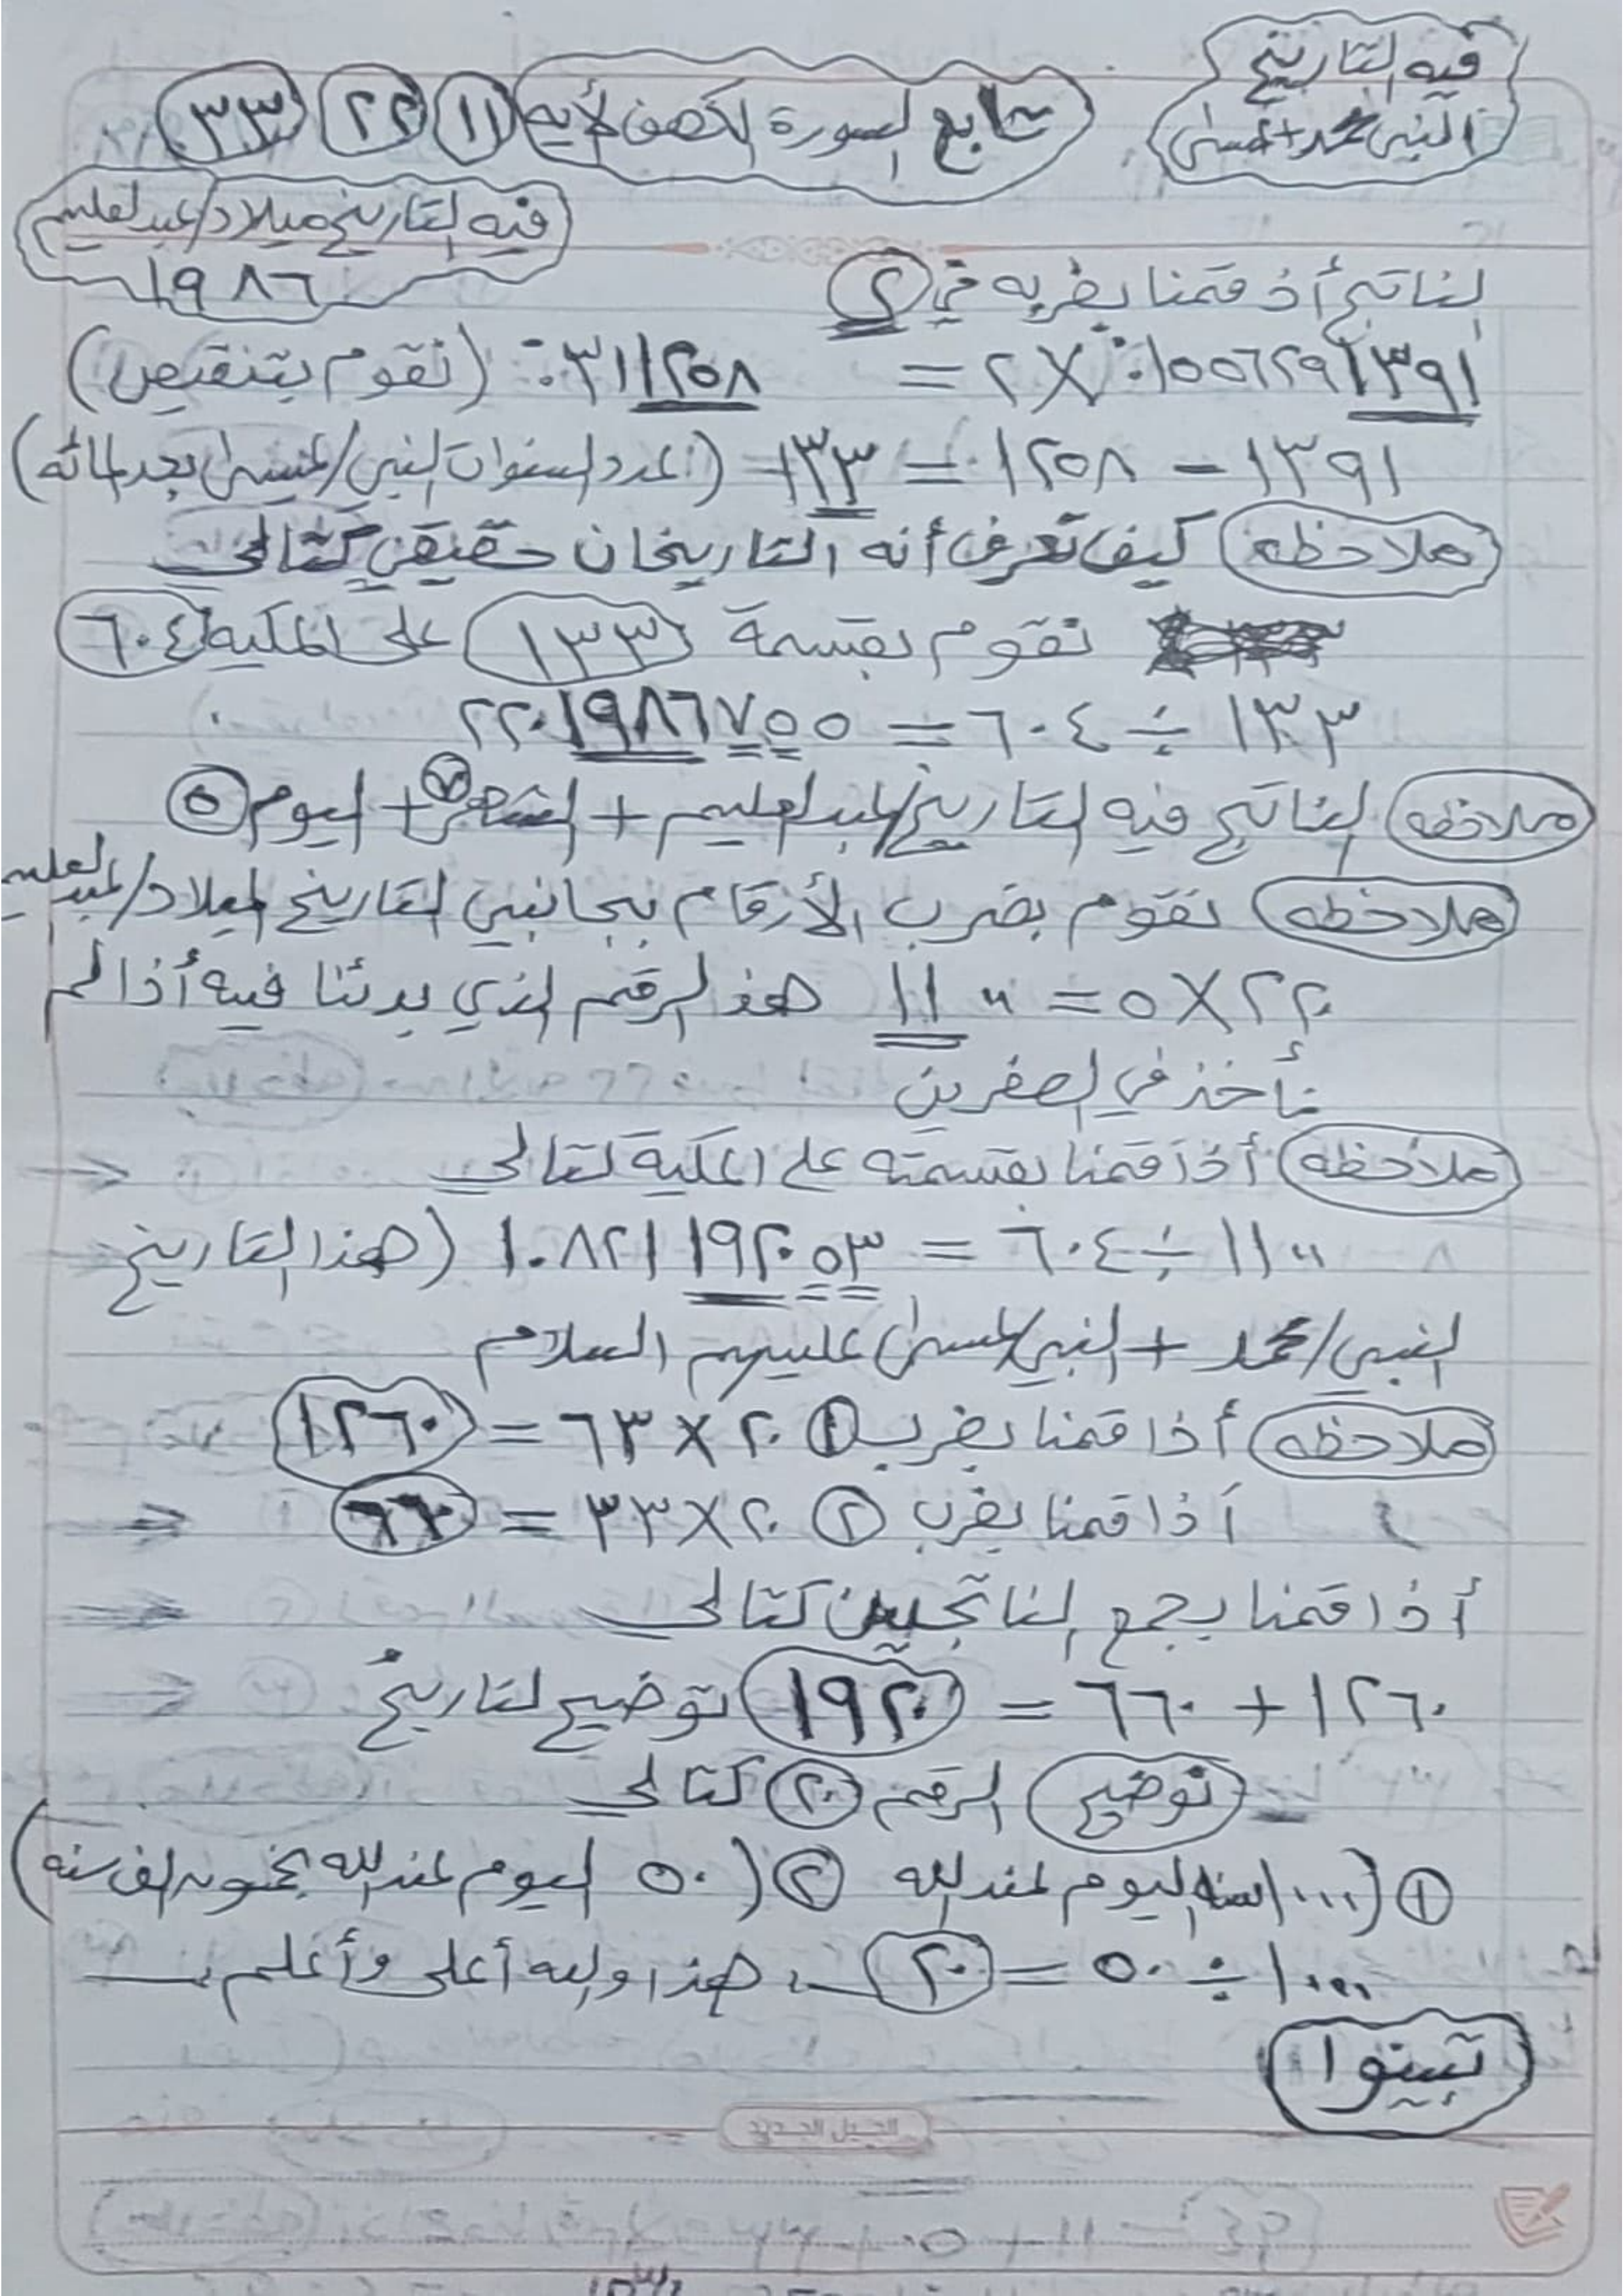 فيه التاريخ
النبي محمد + عيسى
تابع السورة الكهف لأيه ١١ ٢٢ ٣٣
فيه التاريخ ميلاد/عبدالعليم
١٩٨٦
الناتج أذ قمنا بضربه في ٢
٠.١٥٥٦٢٩١٣٩١ × ٢ =
٠.٣١١٢٥٨ (نقوم بتنقيص)
١٣٩١ - ١٢٥٨ = ١٣٣ (لعدد السنوات النبي/عيسى بعد المائه)
ملاحظه كيف تعرف أنه التاريخان حقيقي كتالي
نقوم بقسمة ١٣٣ على المكيه ٦٠٤
١٣٣ ÷ ٦٠٤ = ٢٢٠١٩٨٦٧٥٥
ملاحظه الناتج فيه التاريخ/عبدالعليم + الشهر ٧ + اليوم ٥
ملاحظه نقوم بضرب الأرقام بجانبي التاريخ لميلاد/عبدالعليم
٢٢٠ × ٥ = ١١٠٠ هذ الرقم الذي بدئنا فيه أذا لم
نأخذ في الصفرين
ملاحظه أذا قمنا بقسمته على المكية كتالي
١١٠٠ ÷ ٦٠٤ = ١.٨٢١١٩٢٠٥٣ (هذا التاريخ
النبي/محمد + النبي/عيسى عليهم السلام
ملاحظه أذا قمنا بضرب ① ٢٠ × ٦٣ = ١٢٦٠
أذا قمنا بضرب ② ٢٠ × ٣٣ = ٦٦٠
أذا قمنا بجمع الناتجين كتالي
١٢٦٠ + ٦٦٠ = ١٩٢٠ توضيح لتاريخ
توضيح الرقم ٢٠ كتالي
① (١٠٠٠ سنه اليوم عند الله ② (٥٠ اليوم عند الله بخمسون الف سنه)
١٠٠٠ ÷ ٥٠ = ٢٠ هذا والله أعلى وأعلم
تبينوا
الجيل الجديد